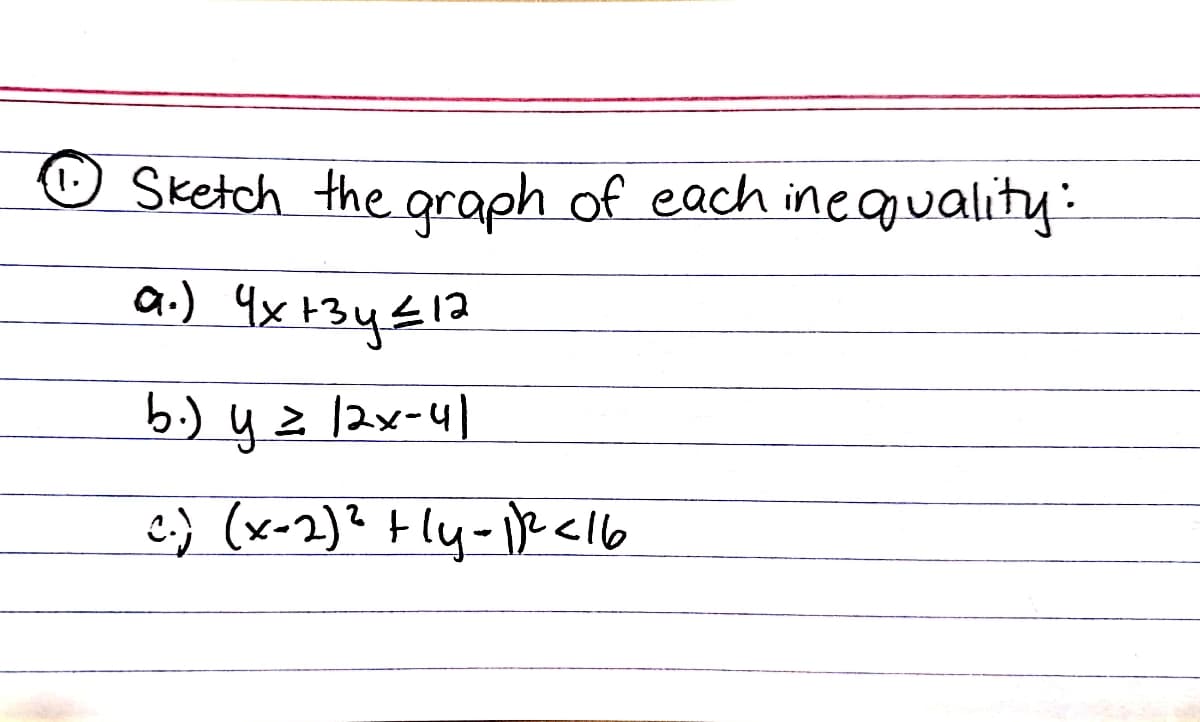 1. Sketch the graph of each inequality:
a.) 4x+3y≤12
b.) y ≥ |2x-4|
c.) (x-2)² + (y-1)² <16